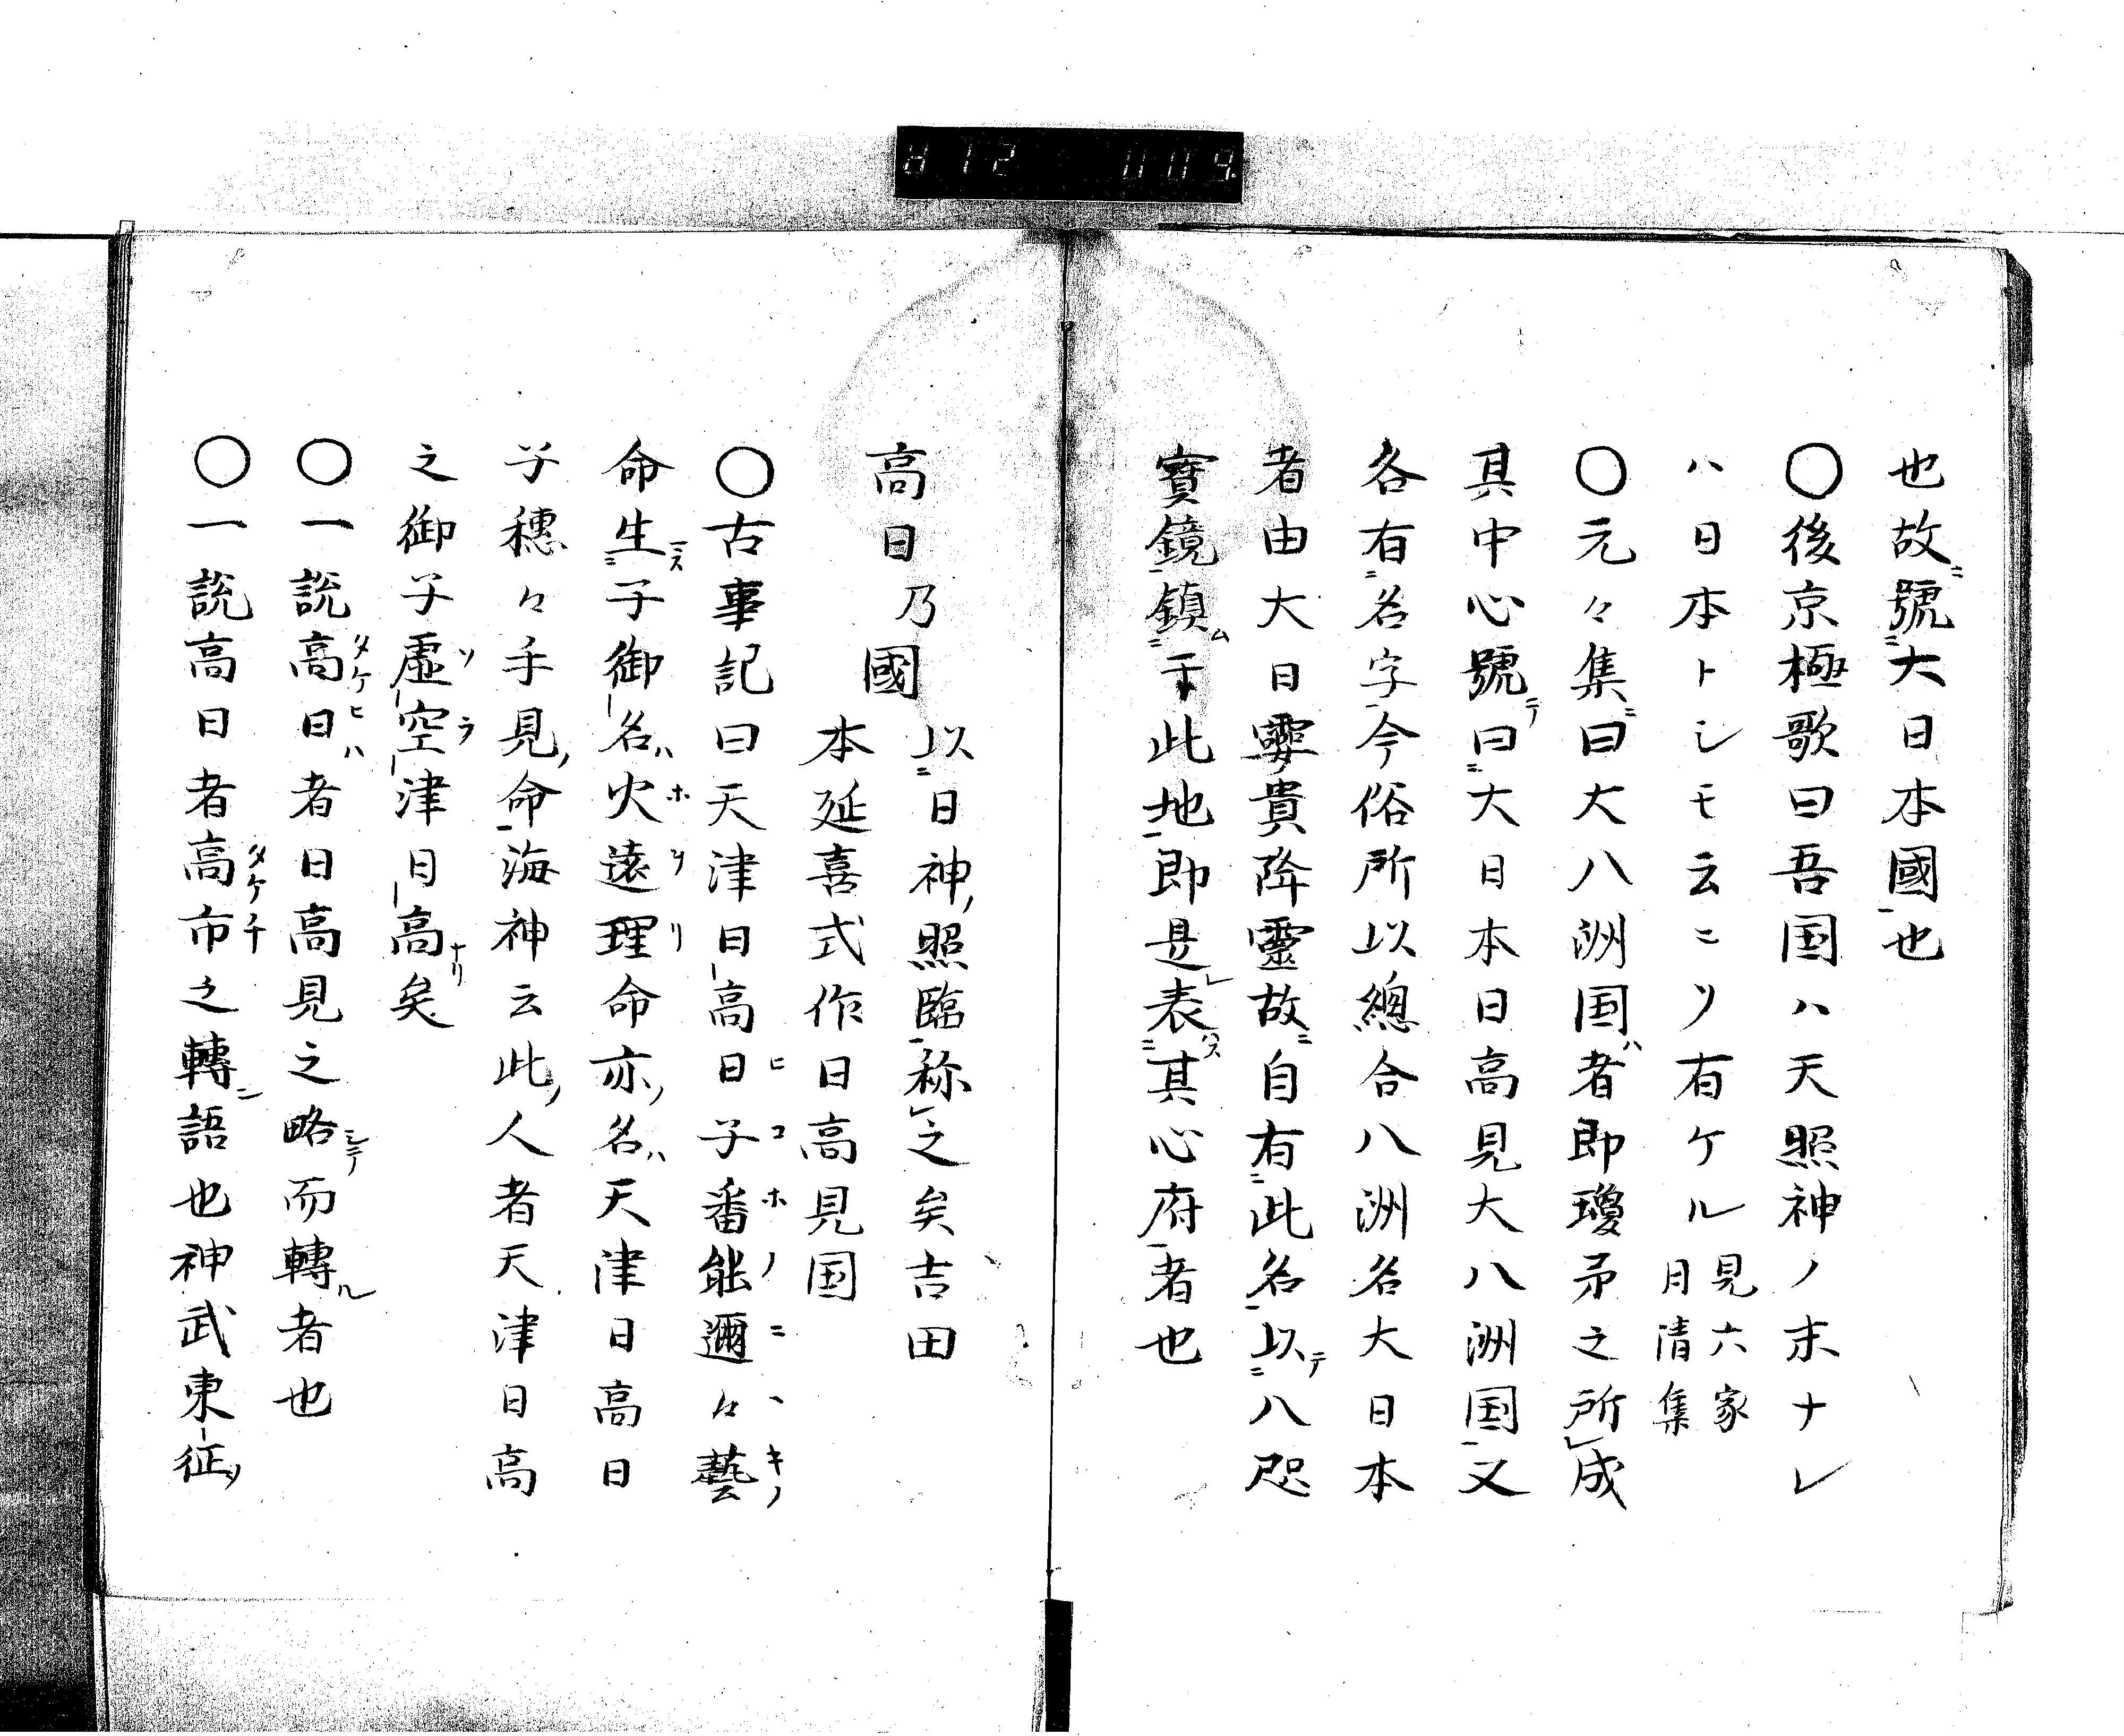 也故號大日本國也
〇後京極歌曰吾国ハ天照神ノ末ナレ
ハ日本トシモ云ニソ有ケル見六家
月清集
〇元々集曰大八洲国者即瓊矛之所成
其中心號曰大日本日高見大八洲国又
各有名字今俗所以總合八洲名大日本
者由大日孁貴降靈故自有此名以八咫
寶鏡鎮于此地即是表其心府者也
高日乃國以日神照臨称之矣吉田
本延喜式作日高見国
〇古事記曰天津日高日子番能邇々藝
命生子御名火遠理命亦名天津日高日
子穗々手見命海神云此人者天津日高
之御子虛空津日高矣
〇一説高日者日高見之略而轉者也
〇一説高日者高市之轉語也神武東征